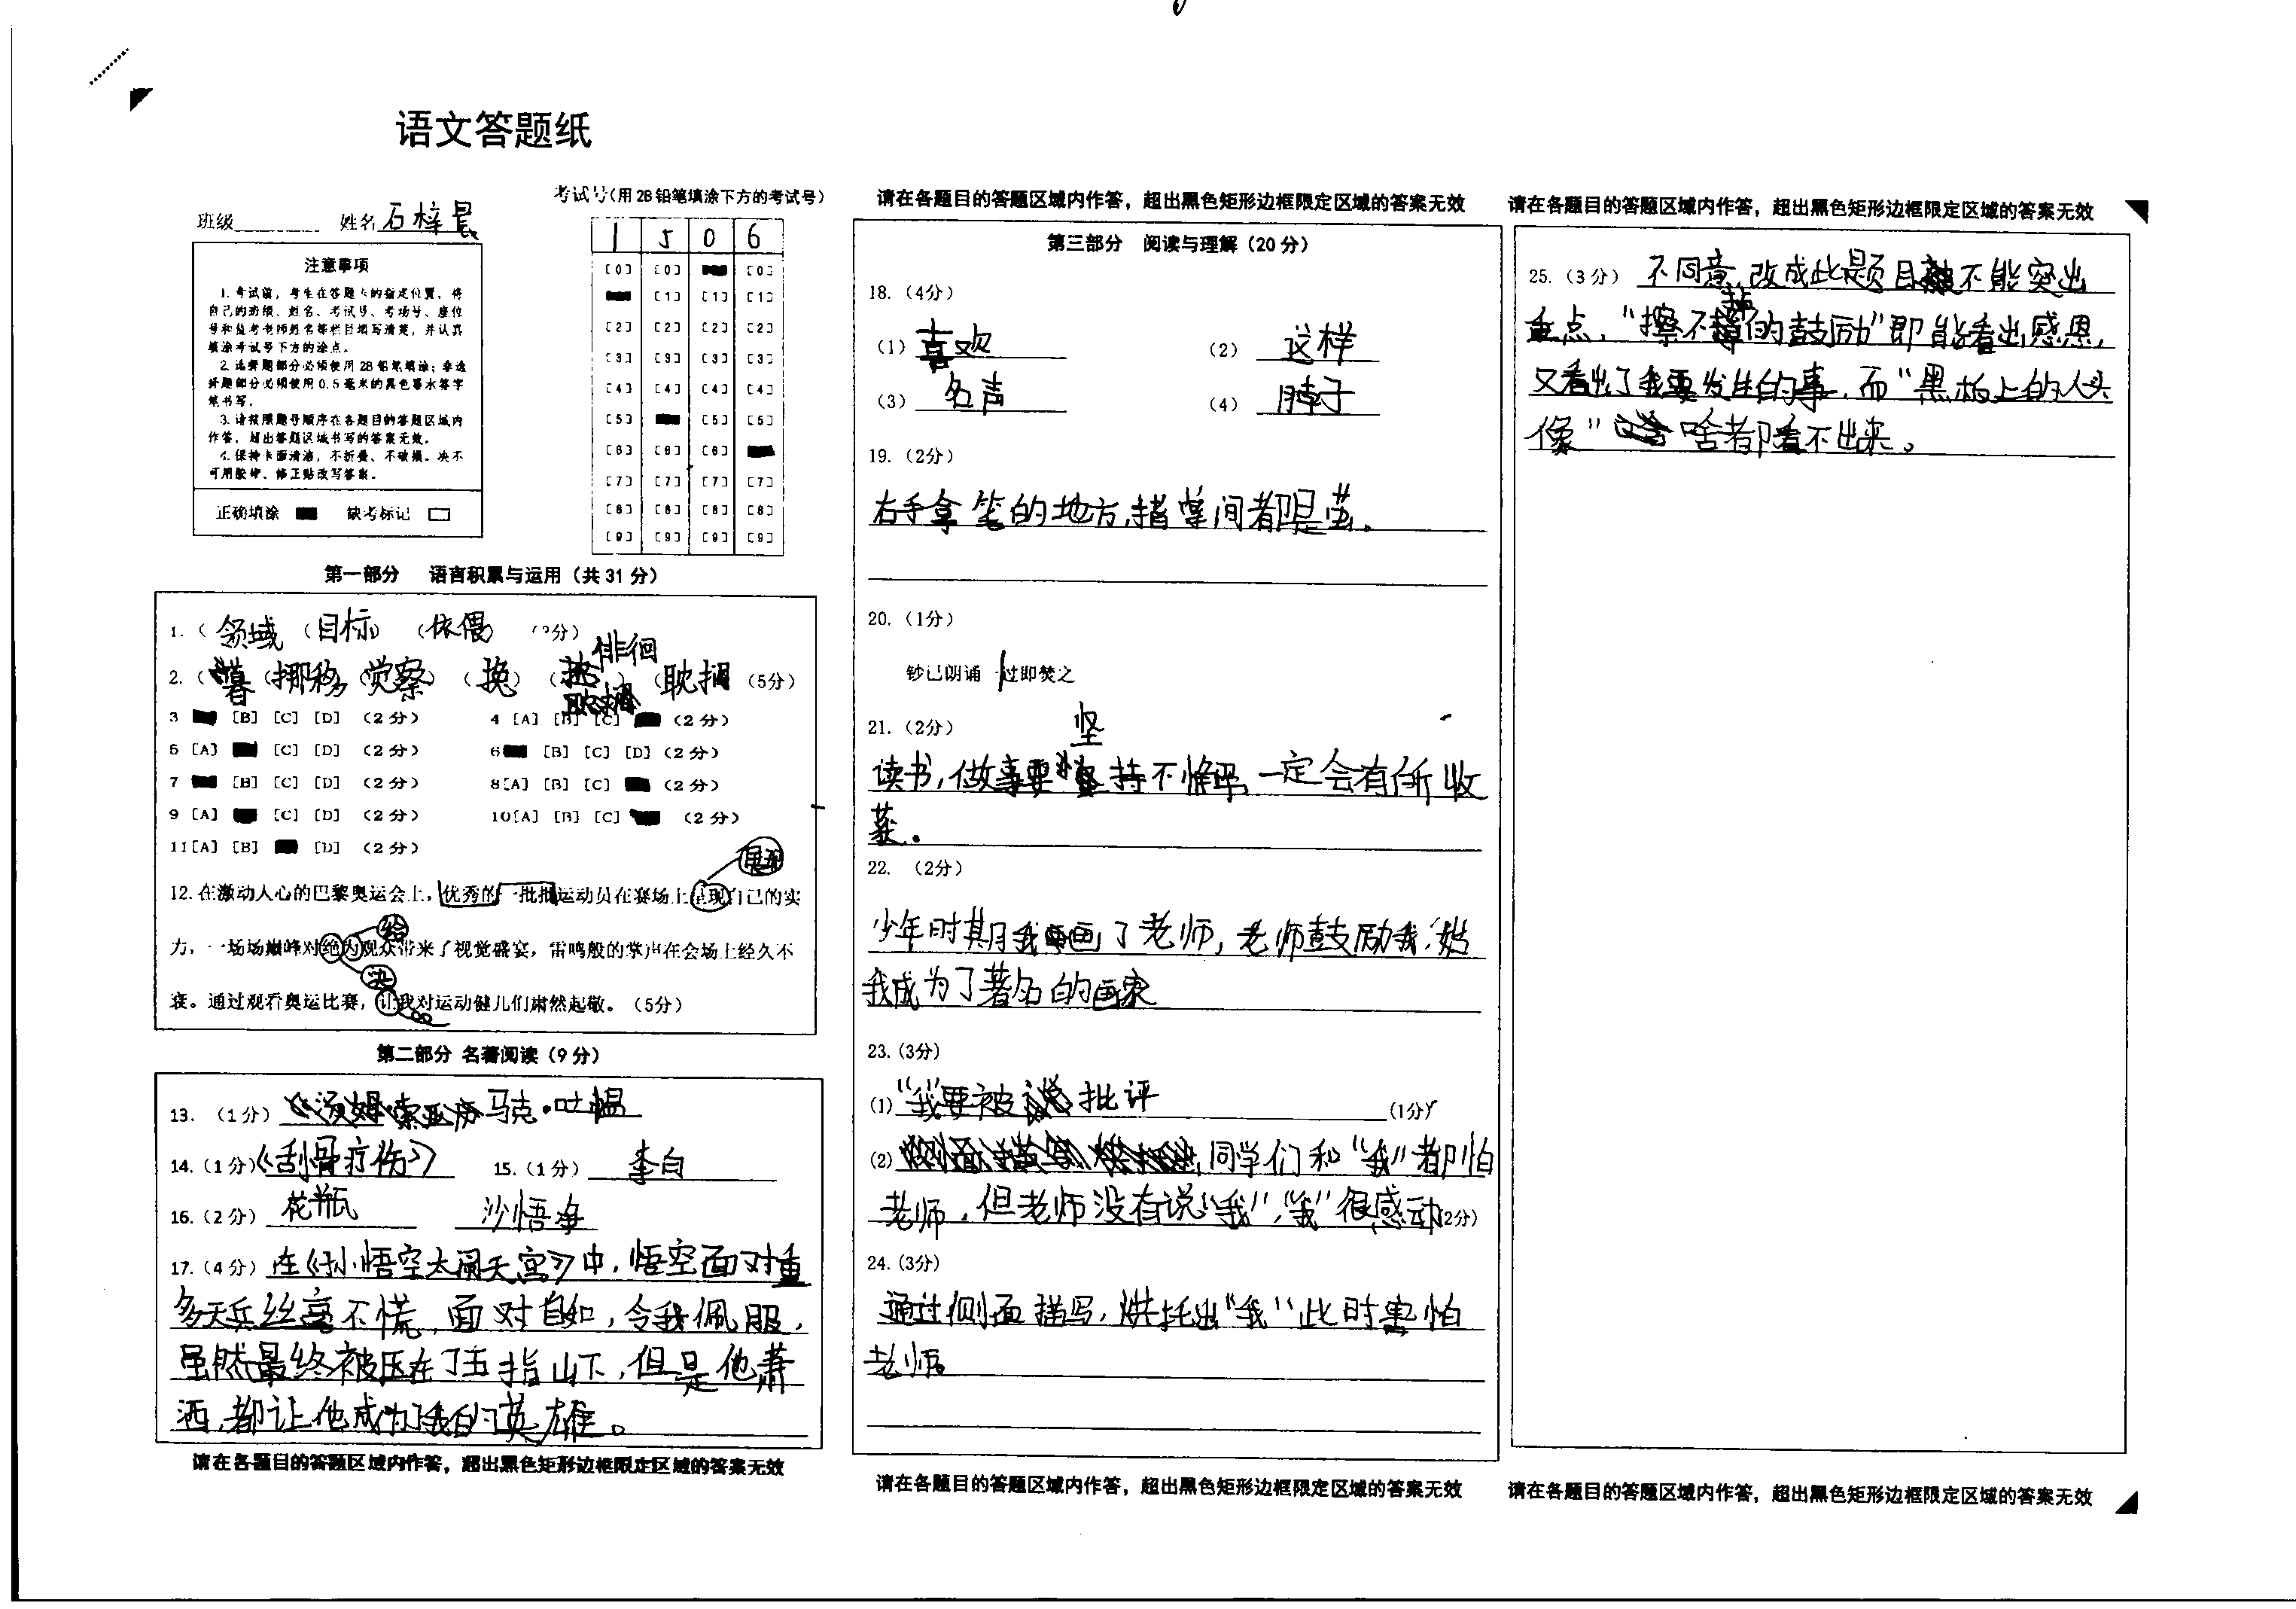 语文答题纸
班级 姓名 石梓晨
考试号(用2B铅笔填涂下方的考试号)
1 5 0 6
[0] [0] [0]
[1] [1] [1]
[2] [2] [2] [2]
[3] [3] [3] [3]
[4] [4] [4] [4]
[5] [5] [5]
[6] [6] [6]
[7] [7] [7] [7]
[8] [8] [8] [8]
[9] [9] [9] [9]
注意事项
1.考试前,考生在答题卡的指定位置,将
自己的班级、姓名、考试号、考场号、座位
号和监考老师姓名等栏目填写清楚,并认真
填涂考试号下方的涂点。
2.选择题部分必须使用2B铅笔填涂;非选
择题部分必须使用0.5毫米的黑色墨水签字
笔书写。
3.请按照题号顺序在各题目的答题区域内
作答,超出答题区域书写的答案无效。
4.保持卡面清洁,不折叠、不破损。决不
可用胶带、修正贴改写答案。
正确填涂 缺考标记
第一部分 语言积累与运用(共31分)
1.( 领域 (目标) (依偎) 分)
俳徊
2.( 暮 (挪移) (觉察) (换) ( ) (耽搁 (5分)
3 [B] [C] [D] (2分) 4 [A] [B] [C] (2分)
5 [A] [C] [D] (2分) 6 [B] [C] [D] (2分)
7 [B] [C] [D] (2分) 8[A] [B] [C] (2分)
9 [A] [C] [D] (2分) 10[A] [B] [C] (2分)
11[A] [B] [D] (2分)
展现
12.在激动人心的巴黎奥运会上,优秀的一批批运动员在赛场上呈现自己的实
给
力,一场场巅峰对绝为观众带来了视觉盛宴,雷鸣般的掌声在会场上经久不
决
衰。通过观看奥运比赛,让我对运动健儿们肃然起敬。(5分)
第二部分 名著阅读(9分)
13.(1分) 马克·吐温
14.(1分)《刮骨疗伤》 15.(1分) 李白
16.(2分) 花瓶 沙悟净
17.(4分) 在《孙悟空大闹天宫》中,悟空面对重
多天兵丝毫不慌,面对自如,令我佩服,
虽然最终被压在了五指山下,但是他萧
洒,都让他成为了我的英雄。
请在各题目的答题区域内作答,超出黑色矩形边框限定区域的答案无效
请在各题目的答题区域内作答,超出黑色矩形边框限定区域的答案无效
第三部分 阅读与理解(20分)
18.(4分)
(1) 喜欢 (2) 这样
(3) 名声 (4) 脖子
19.(2分)
右手拿笔的地方,指掌间都是茧。
20.(1分)
钞已朗诵一过即焚之
21.(2分)
坚
读书,做事要持不懈,一定会有所收
获。
22.(2分)
少年时期我画了老师,老师鼓励我,使
我成为了著名的画家
23.(3分)
(1) “我”要被批评 (1分)
(2) 同学们和“我”都怕
老师,但老师没有说“我”,“我”很感动(2分)
24.(3分)
通过侧面描写,烘托出“我”此时害怕
老师。
请在各题目的答题区域内作答,超出黑色矩形边框限定区域的答案无效
请在各题目的答题区域内作答,超出黑色矩形边框限定区域的答案无效
25.(3分) 不同意,改成此题目不能突出
掉
重点,“擦不的鼓励”即能看出感恩,
又看出了我要发生的事,而“黑板上的人头
像”啥都看不出来。
请在各题目的答题区域内作答,超出黑色矩形边框限定区域的答案无效